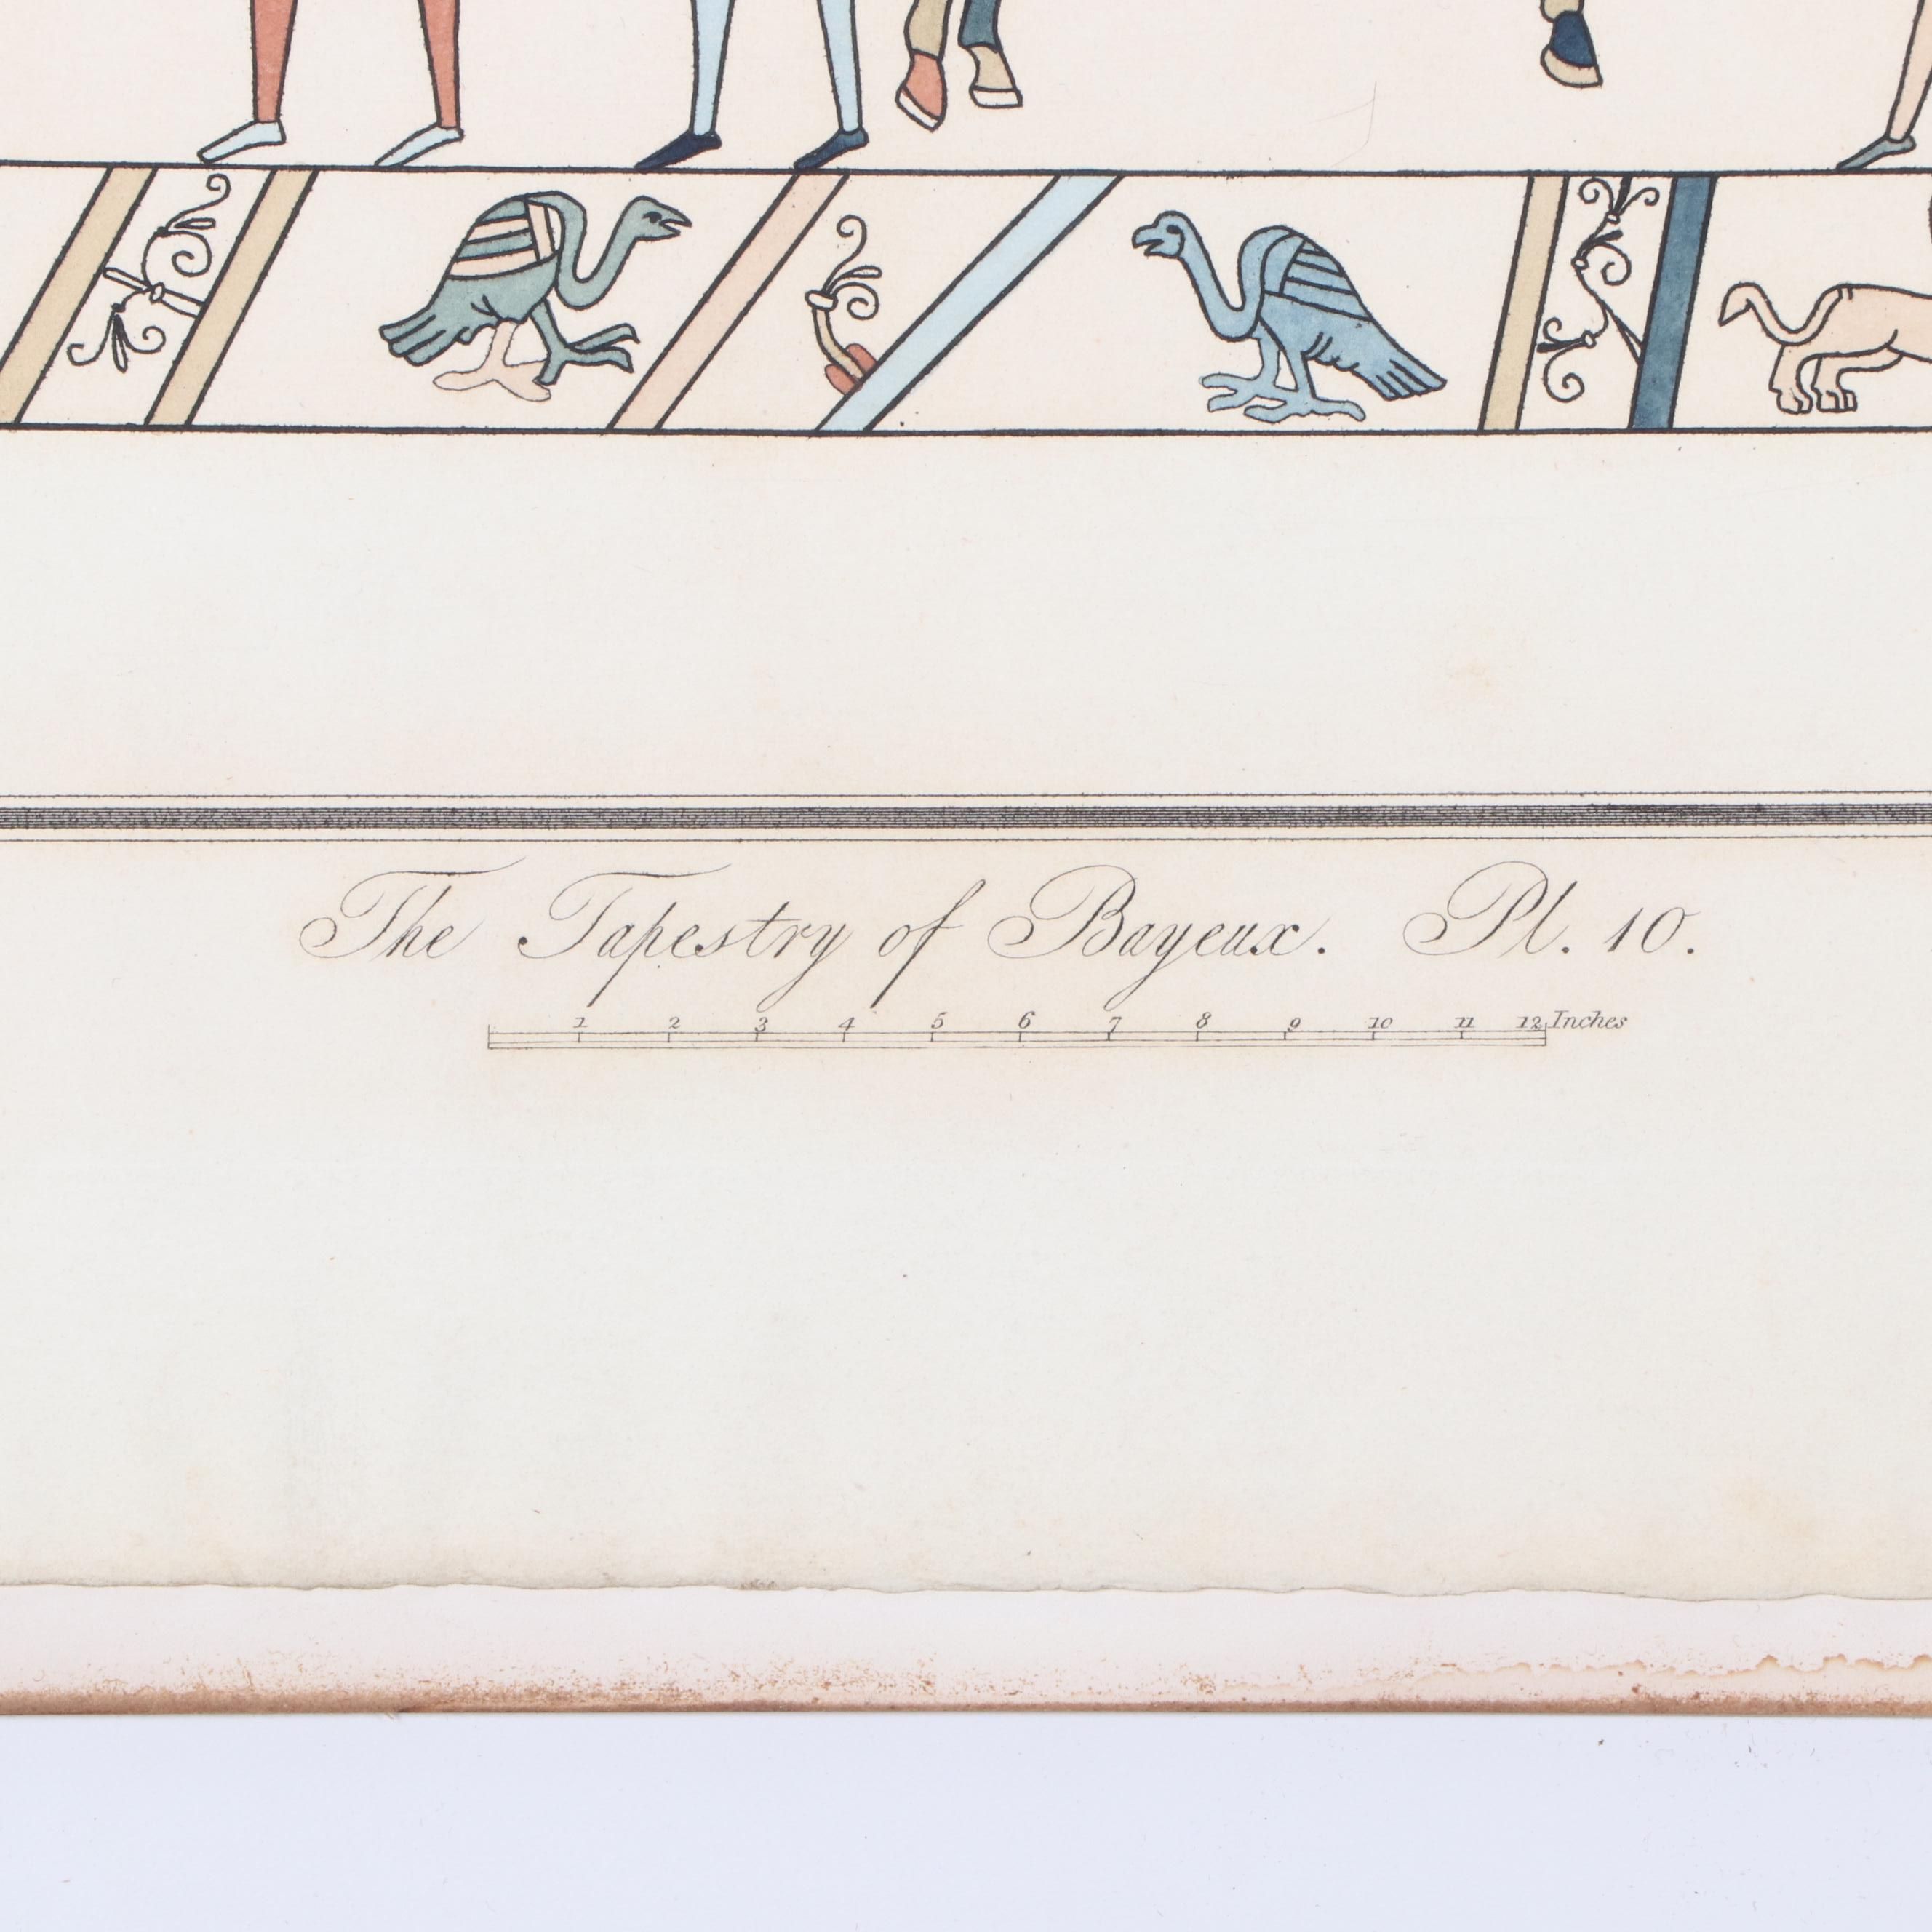 The Tapestry of Bayeux. Pl. 10.
1 2 3 4 5 6 7 8 9 10 11 12 Inches